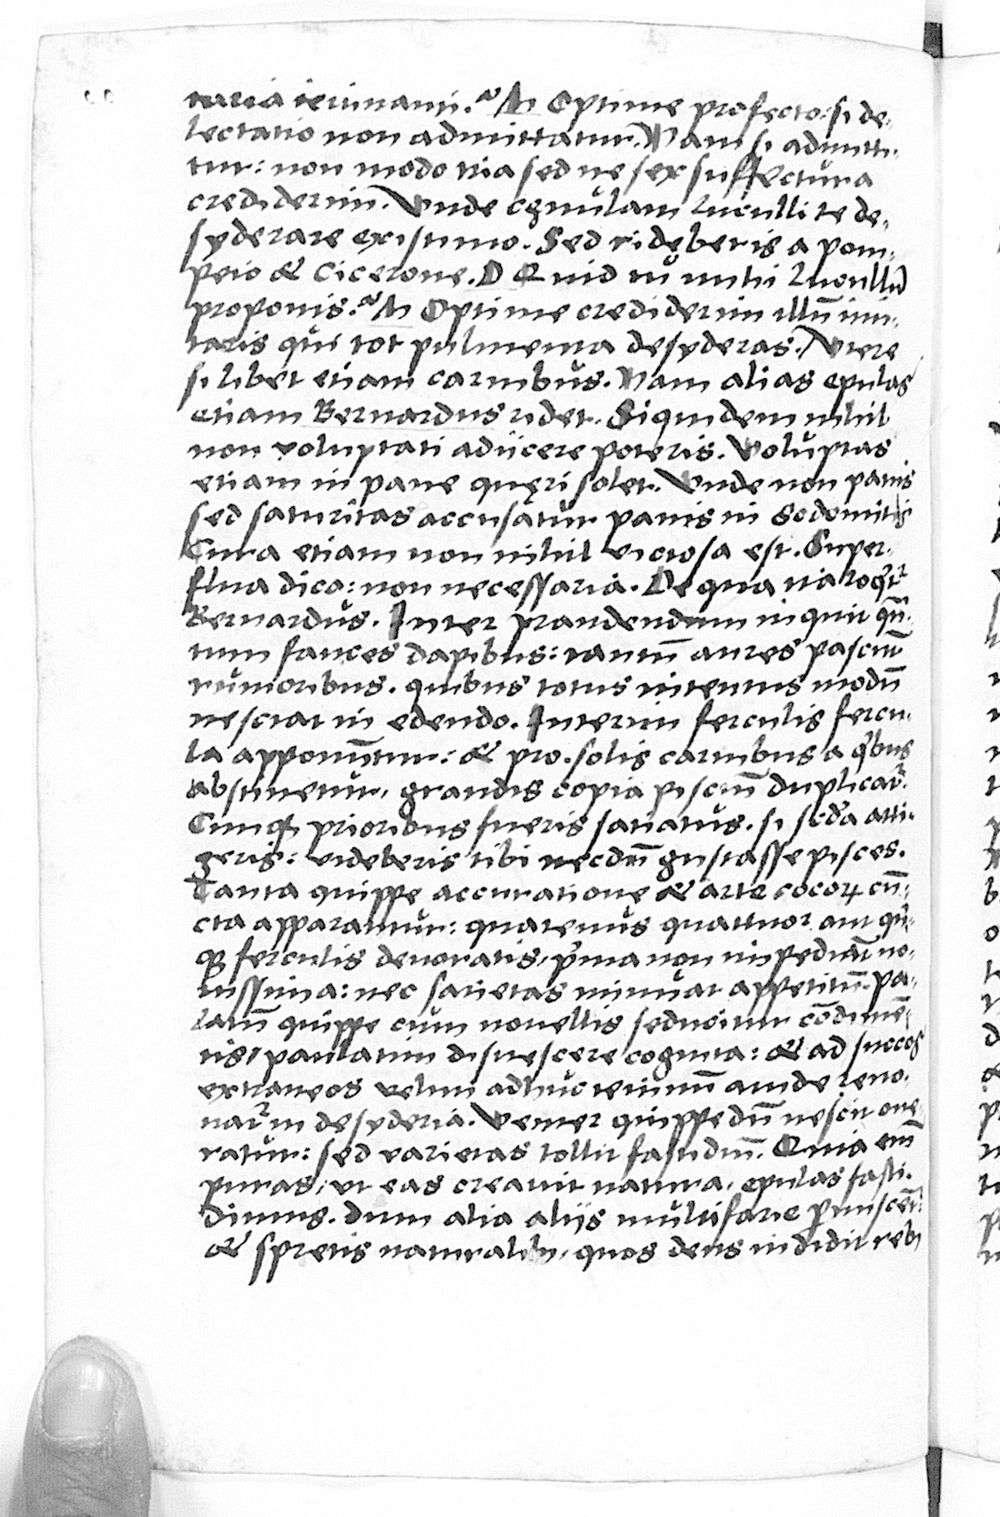 turia ieiunanti? M Optime profecto: si de-
lectatio non admittatur. Nam si admitti-
tur: non modo tria sed ne sex suffectura
crediderim. Unde cenulam Luculli te de-
syderare existimo. Sed rideberis a pom-
peio & Cicerone. D Quid tu mihi Lucullū
proponis? M Optime crediderim illū imi-
taris qui tot pulmenta desyderas. Utere
si libet etiam carnibus. Nam alias epulas
etiam Bernardus ridet. Siquidem nihil
non voluptati adiicere poteris. Voluptas
etiam in pane queri solet. Unde non panis
sed saturitas accusatur panis in Sodomitis
Cura etiam non nihil viciosa est. Super-
flua dico: non necessaria. De qua ita loqt̄
Bernardus. Inter prandendum inquit qn̄-
tum fauces dapibus: tantū aures pascunt̄
rumoribus. quibus totus intentus modū
nesciat in edendo. Interim ferculis fercu-
la apponūtur: & pro solis carnibus a qbus
abstinetur, grandis copia pisciū duplicat̄.
Cumq; prioribus fueris satiatus. si secd̄a atti-
geris: videberis tibi necdū gustasse pisces.
Tanta quippe accuratione & arte cocoꝝ cū-
cta apparantur: quatenus quattuor aut qn̄-
q; ferculis devoratis, pma non impediāt no-
vissima: nec satietas minuat appetitū. pa-
latū quippe cum novellis seducitur cōdimē-
tis, paulatim disuescere cognita: & ad succos
extraneos velut adhuc ieiunū avide reno-
vat̄ in desyderia. Venter quippe dū nescit one-
ratur: sed varietas tollit fastidiū. Quia em̄
puras, ut eas creavit natura, epulas fasti-
dimus. dum alia aliis multifarie pmiscent̄:
& spretis naturalib;, quos deus indidit reb;